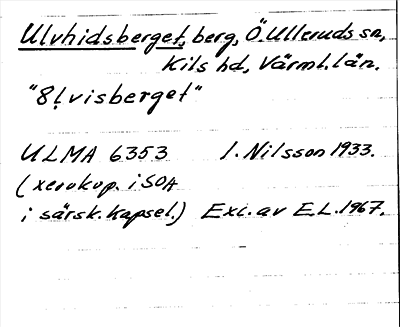 Ulvhidsberget, berg, Ö. Ulleruds sn,
Kils hd, Värml. län.
"8lvisberget"
ULMA 6353 I. Nilsson 1933.
(xerokop. i SOA
i särsk. kapsel.) Exc. av E.L. 1967.